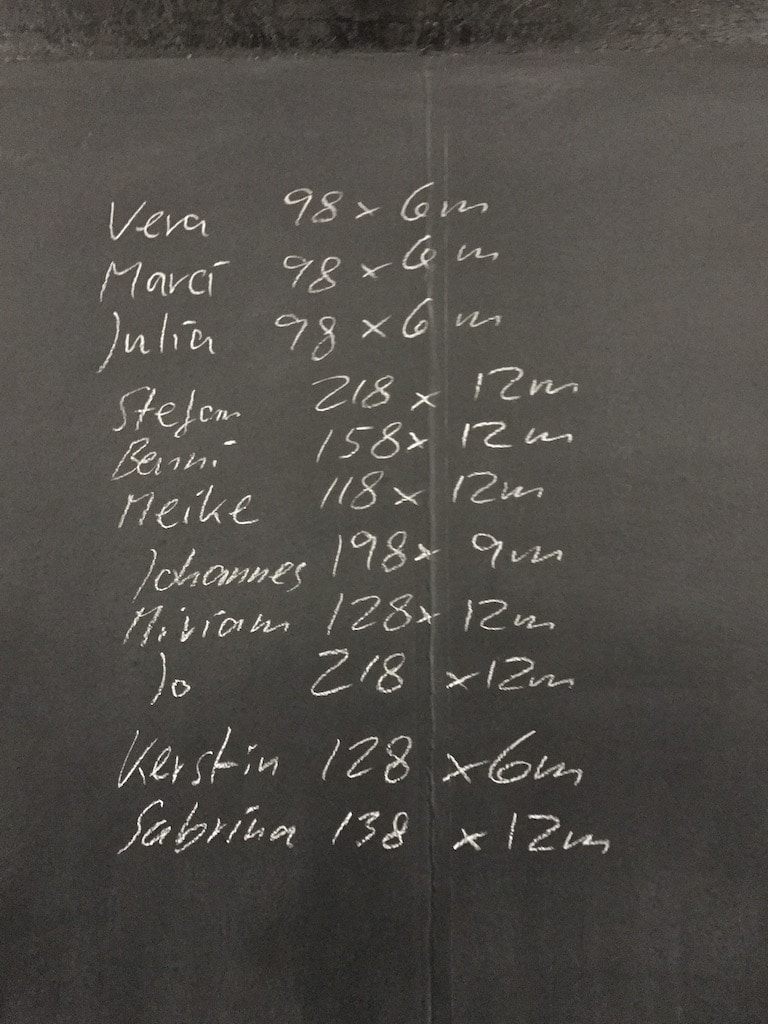 Vera 98 x 6m
Marci 98 x 6m
Julia 98 x 6m
Stefan 218 x 12m
Benni 158 x 12m
Meike 118 x 12m
Johannes 198 x 9m
Miriam 128 x 12m
Jo 218 x 12m
Kerstin 128 x 6m
Sabrina 138 x 12m